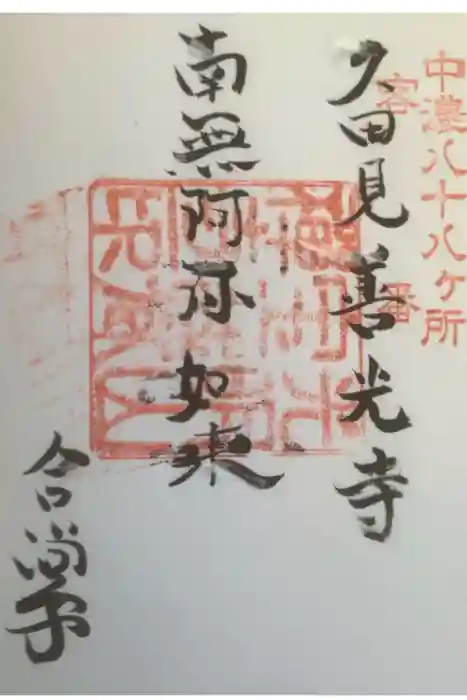 中濃八十八ヶ所
客番
久田見善光寺
南無阿弥如来
合掌